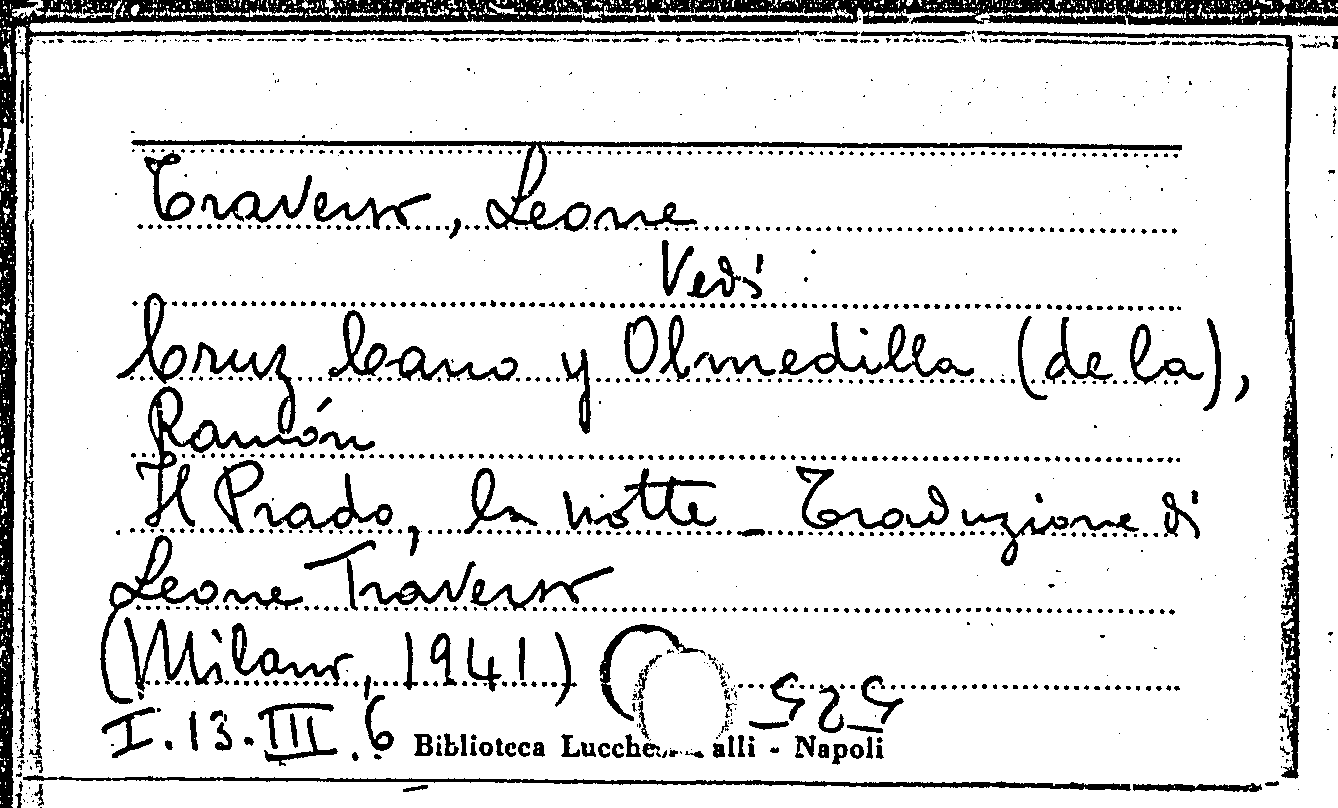 Traverso, Leone
Vedi
Cruz Cano y Olmedilla (de la),
Ramón
Il Prado, la notte - Traduzione di
Leone Traverso
(Milano, 1941)
525
I.13.III.6
Biblioteca Lucchesi Palli - Napoli